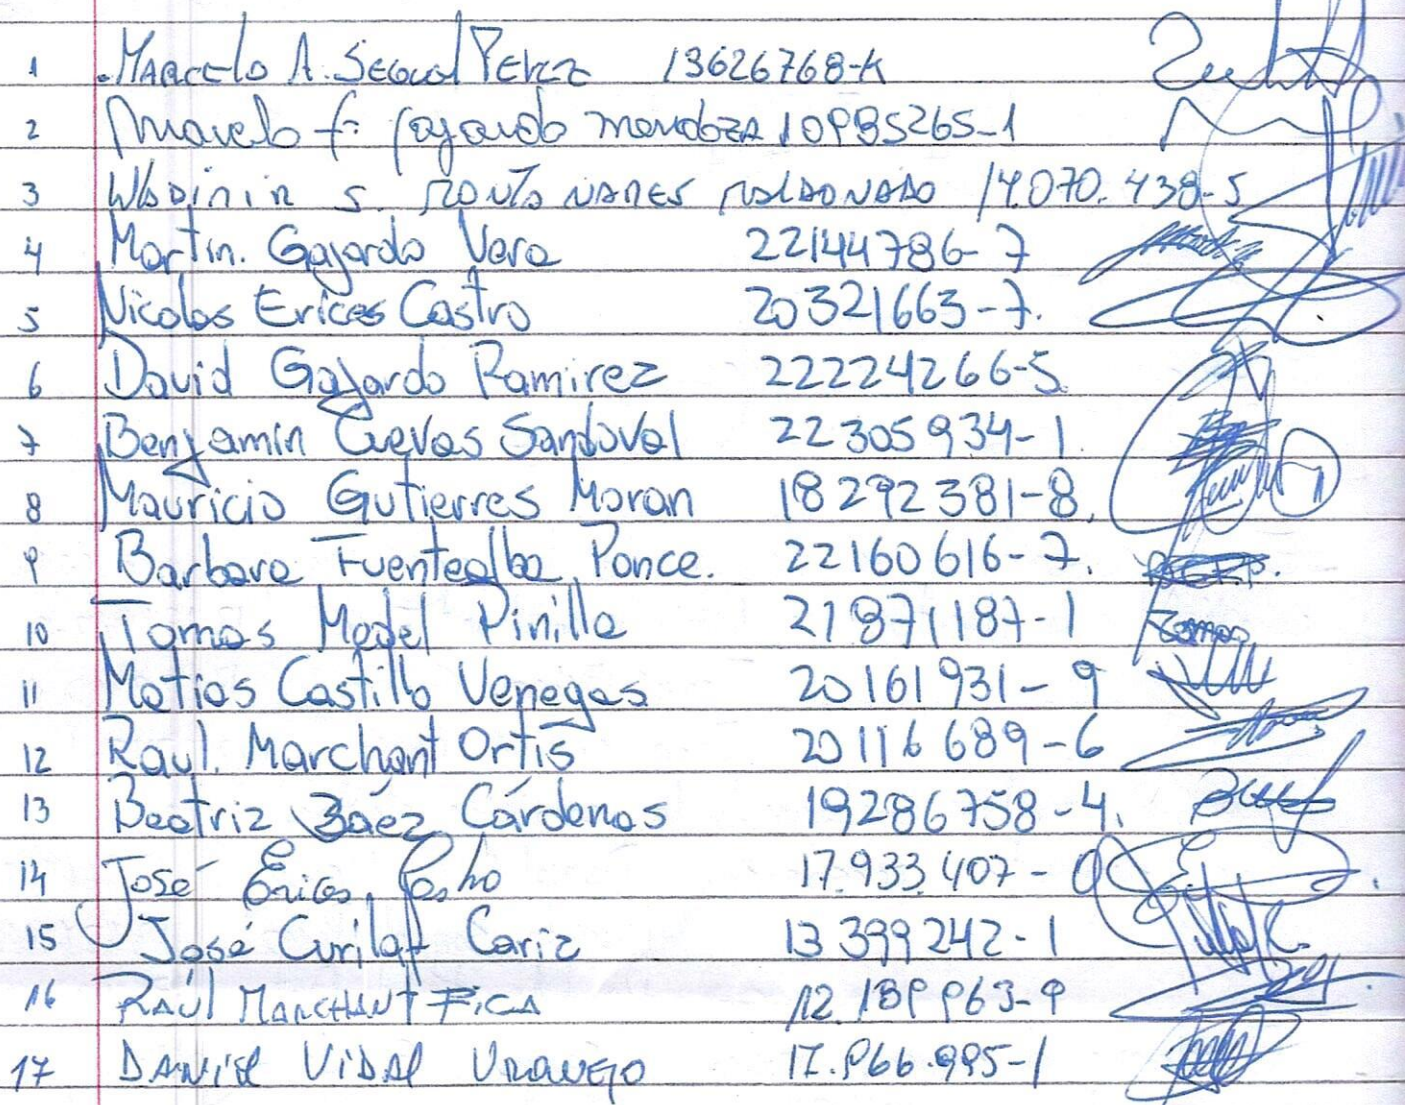 1 Marcelo A. Segual Perez 13626768-K
2 Marcelo f. Gajardo Mendoza 10985265-1
3 Wladimir S. Montonares Maldonado 14.070.438-5
4 Martin. Gajardo Vera 22144786-7
5 Nicolas Erices Castro 20321663-7.
6 David Gajardo Ramirez 22224266-5
7 Benjamin Cuevas Sandoval 22305934-1.
8 Mauricio Gutierres Moran 18292381-8.
9 Barbara Fuentealba Ponce. 22160616-7.
10 Tomas Medel Pinilla 21871187-1 Tomas
11 Matias Castillo Venegas 20161931-9
12 Raul. Marchant Ortis 20116689-6
13 Beatriz Báez Cárdenas 19286758-4.
14 José Erices 17.933.407-0
15 José Curilaf Cariz 13399242-1
16 RAÚL MARCHANT FICA 12.189.963-9
17 DANIEL VIDAL 17.966.995-1